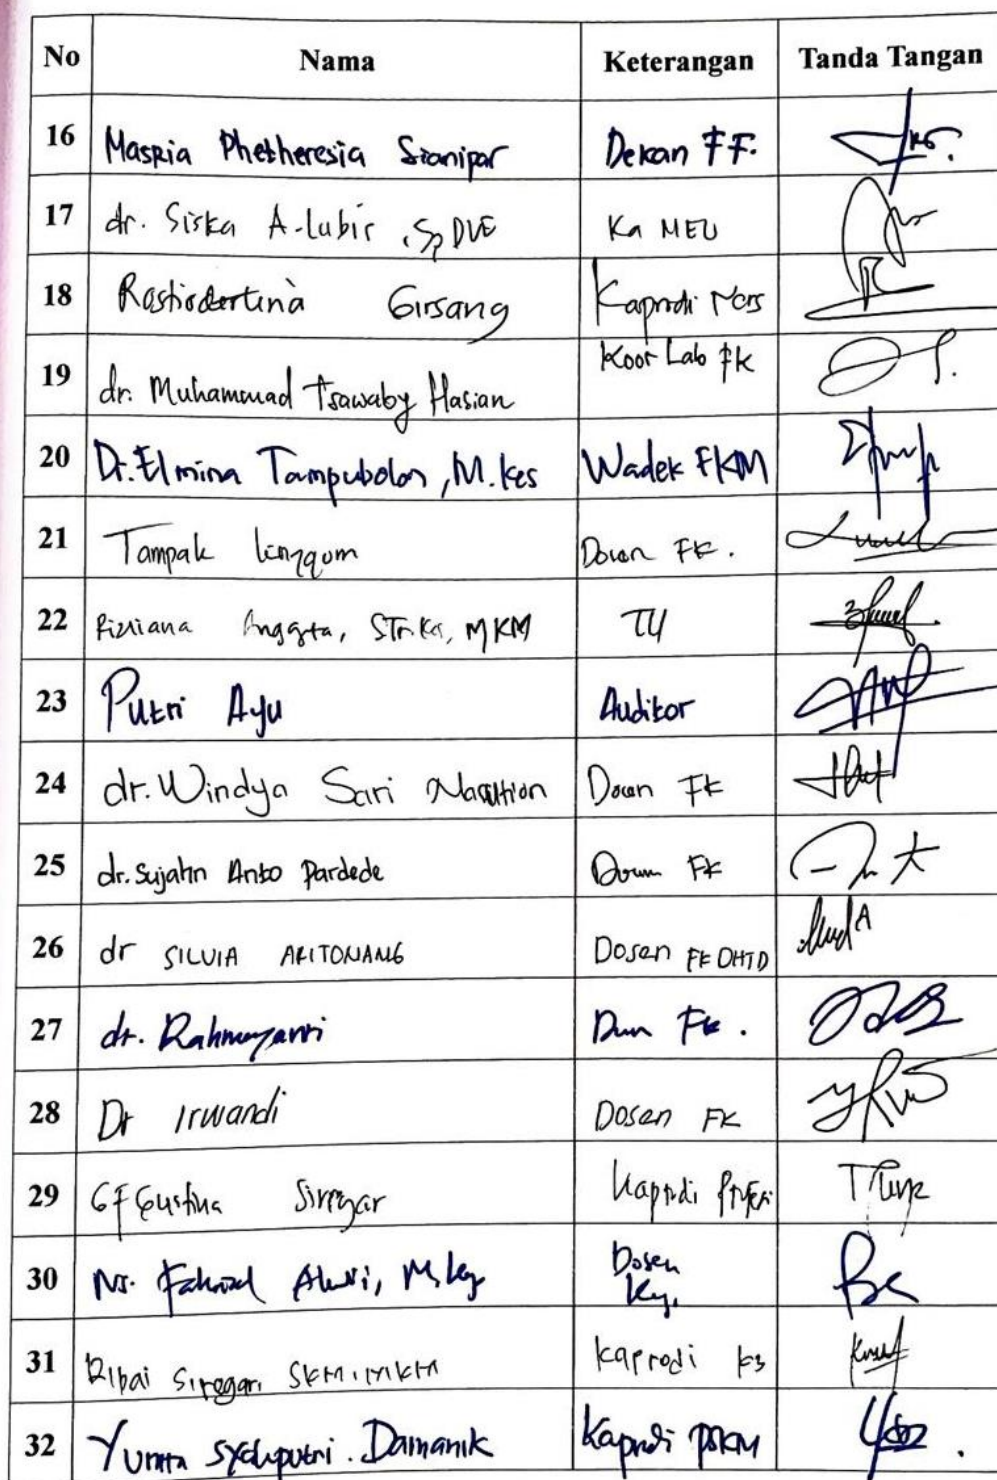 No Nama Keterangan Tanda Tangan
16 Maspia Phetheresia Sianipar Dekan FF.
17 dr. Siska A-Lubis, Sp DVE Ka MEU
18 Rostiodertina Girsang Kaprodi Ners
19 dr. Muhammad Tsawaby Hasian Koor Lab FK
20 Dr. Elmina Tampubolon, M.Kes Wadek FKM
21 Tampak Linggom Dosen FK.
22 Anggita, STr.Kes, MKM TU
23 Putri Ayu Auditor
24 dr. Windya Sari Nasution Dosen FK
25 dr. Sujahn Anto Pardede Dosen FK
26 dr SILVIA ARITONANG Dosen FK
27 dr. Rahmayanti Dosen FK.
28 Dr Irwandi Dosen FK
29 Siregar Kaprodi
30 Ns. M.Kep Dosen
Kep.
31 Ribai Siregar, SKM., MKM Kaprodi K3
32 Damanik Kaprodi PSKM